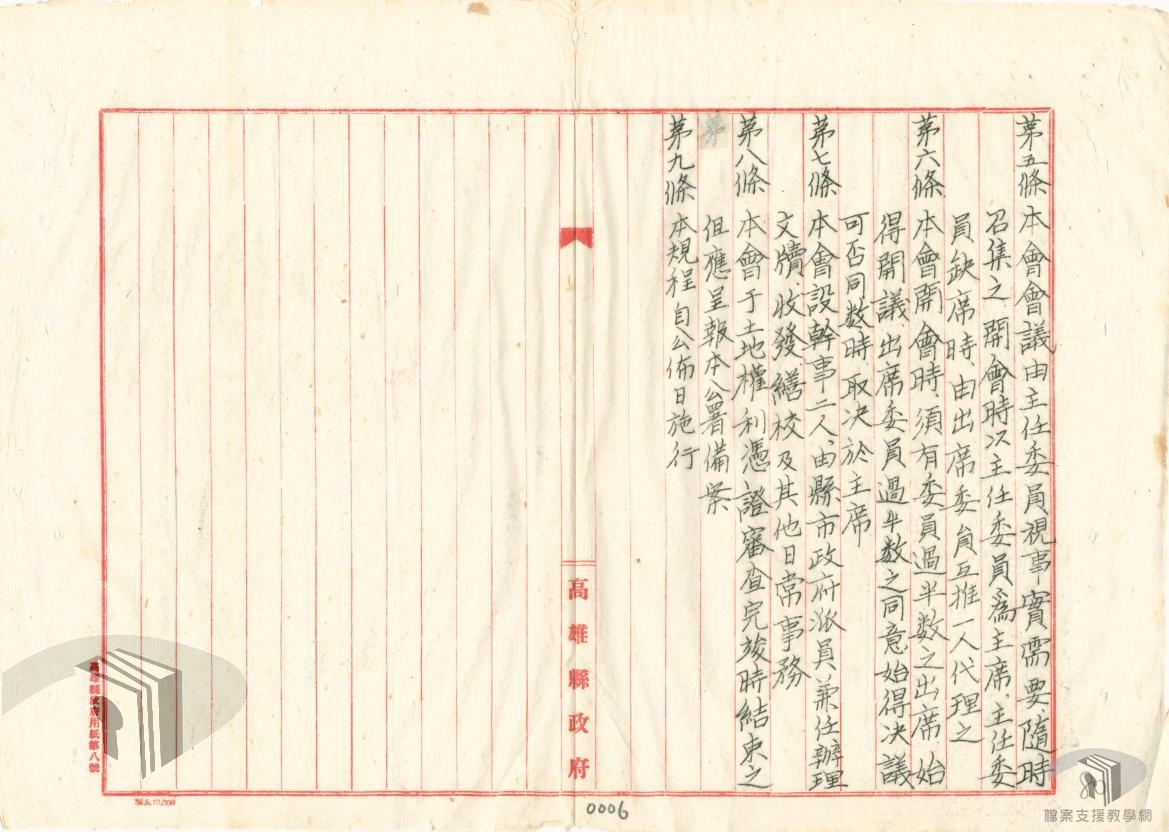 第五條 本會會議由主任委員視事實需要隨時
召集之開會時以主任委員為主席、主任委
員缺席時、由出席委員互推一人代理之
第六條 本會開會時、須有委員過半数之出席始
得開議出席委員過半数之同意始得决議
可否同数時取决於主席
第七條 本會設幹事二人、由縣市政府派員兼任辦理
文牘、收發、繕校及其他日常事務
第八條 本會于土地權利憑證審查完竣時結束之
但應呈報本公署備案
第
第九條 本規程自公佈日施行
高雄縣政府
高雄縣政府用紙第八號
0006
檔案支援教學網